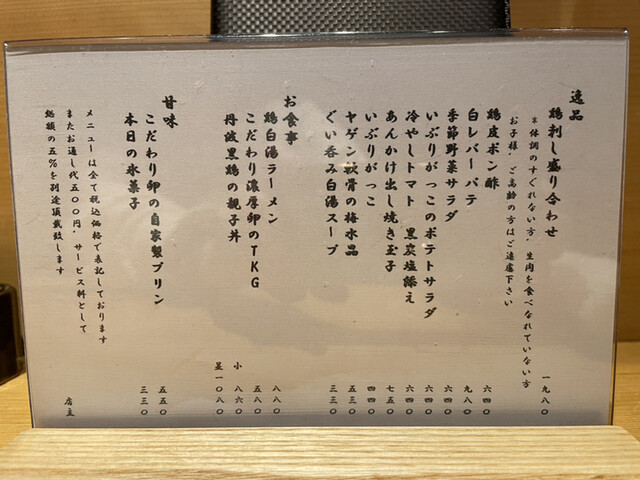 逸品
鶏刺し盛り合わせ 一九八〇
※体調のすぐれない方、生肉を食べなれていない方
お子様、ご高齢の方はご遠慮下さい
鶏皮ポン酢 六四〇
白レバーパテ 九八〇
季節野菜サラダ 六四〇
いぶりがっこのポテトサラダ 六四〇
冷やしトマト 黒炭塩添え 六四〇
あんかけ出し焼き玉子 七五〇
いぶりがっこ 四四〇
ヤゲン軟骨の梅水晶 五三〇
ぐい呑み白湯スープ 三三〇
お食事
鶏白湯ラーメン 八八〇
こだわり濃厚卵のTKG 五八〇
丹波黒鶏の親子丼 小 八六〇
並 一〇八〇
甘味
こだわり卵の自家製プリン 五五〇
本日の氷菓子 三三〇
メニューは全て税込価格で表記しております
またお通し代五〇〇円、サービス料として
総額の五%を別途頂戴致します
店主